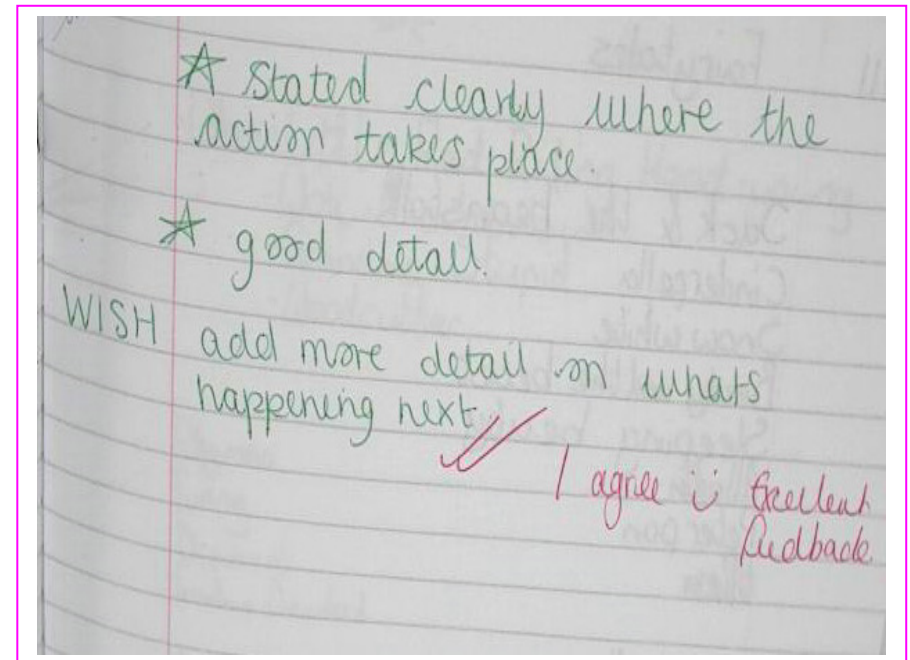 ☆ Stated clearly where the
action takes place.
☆ good detail.
WISH add more detail on whats
happening next.
I agree ü Excellent
feedback